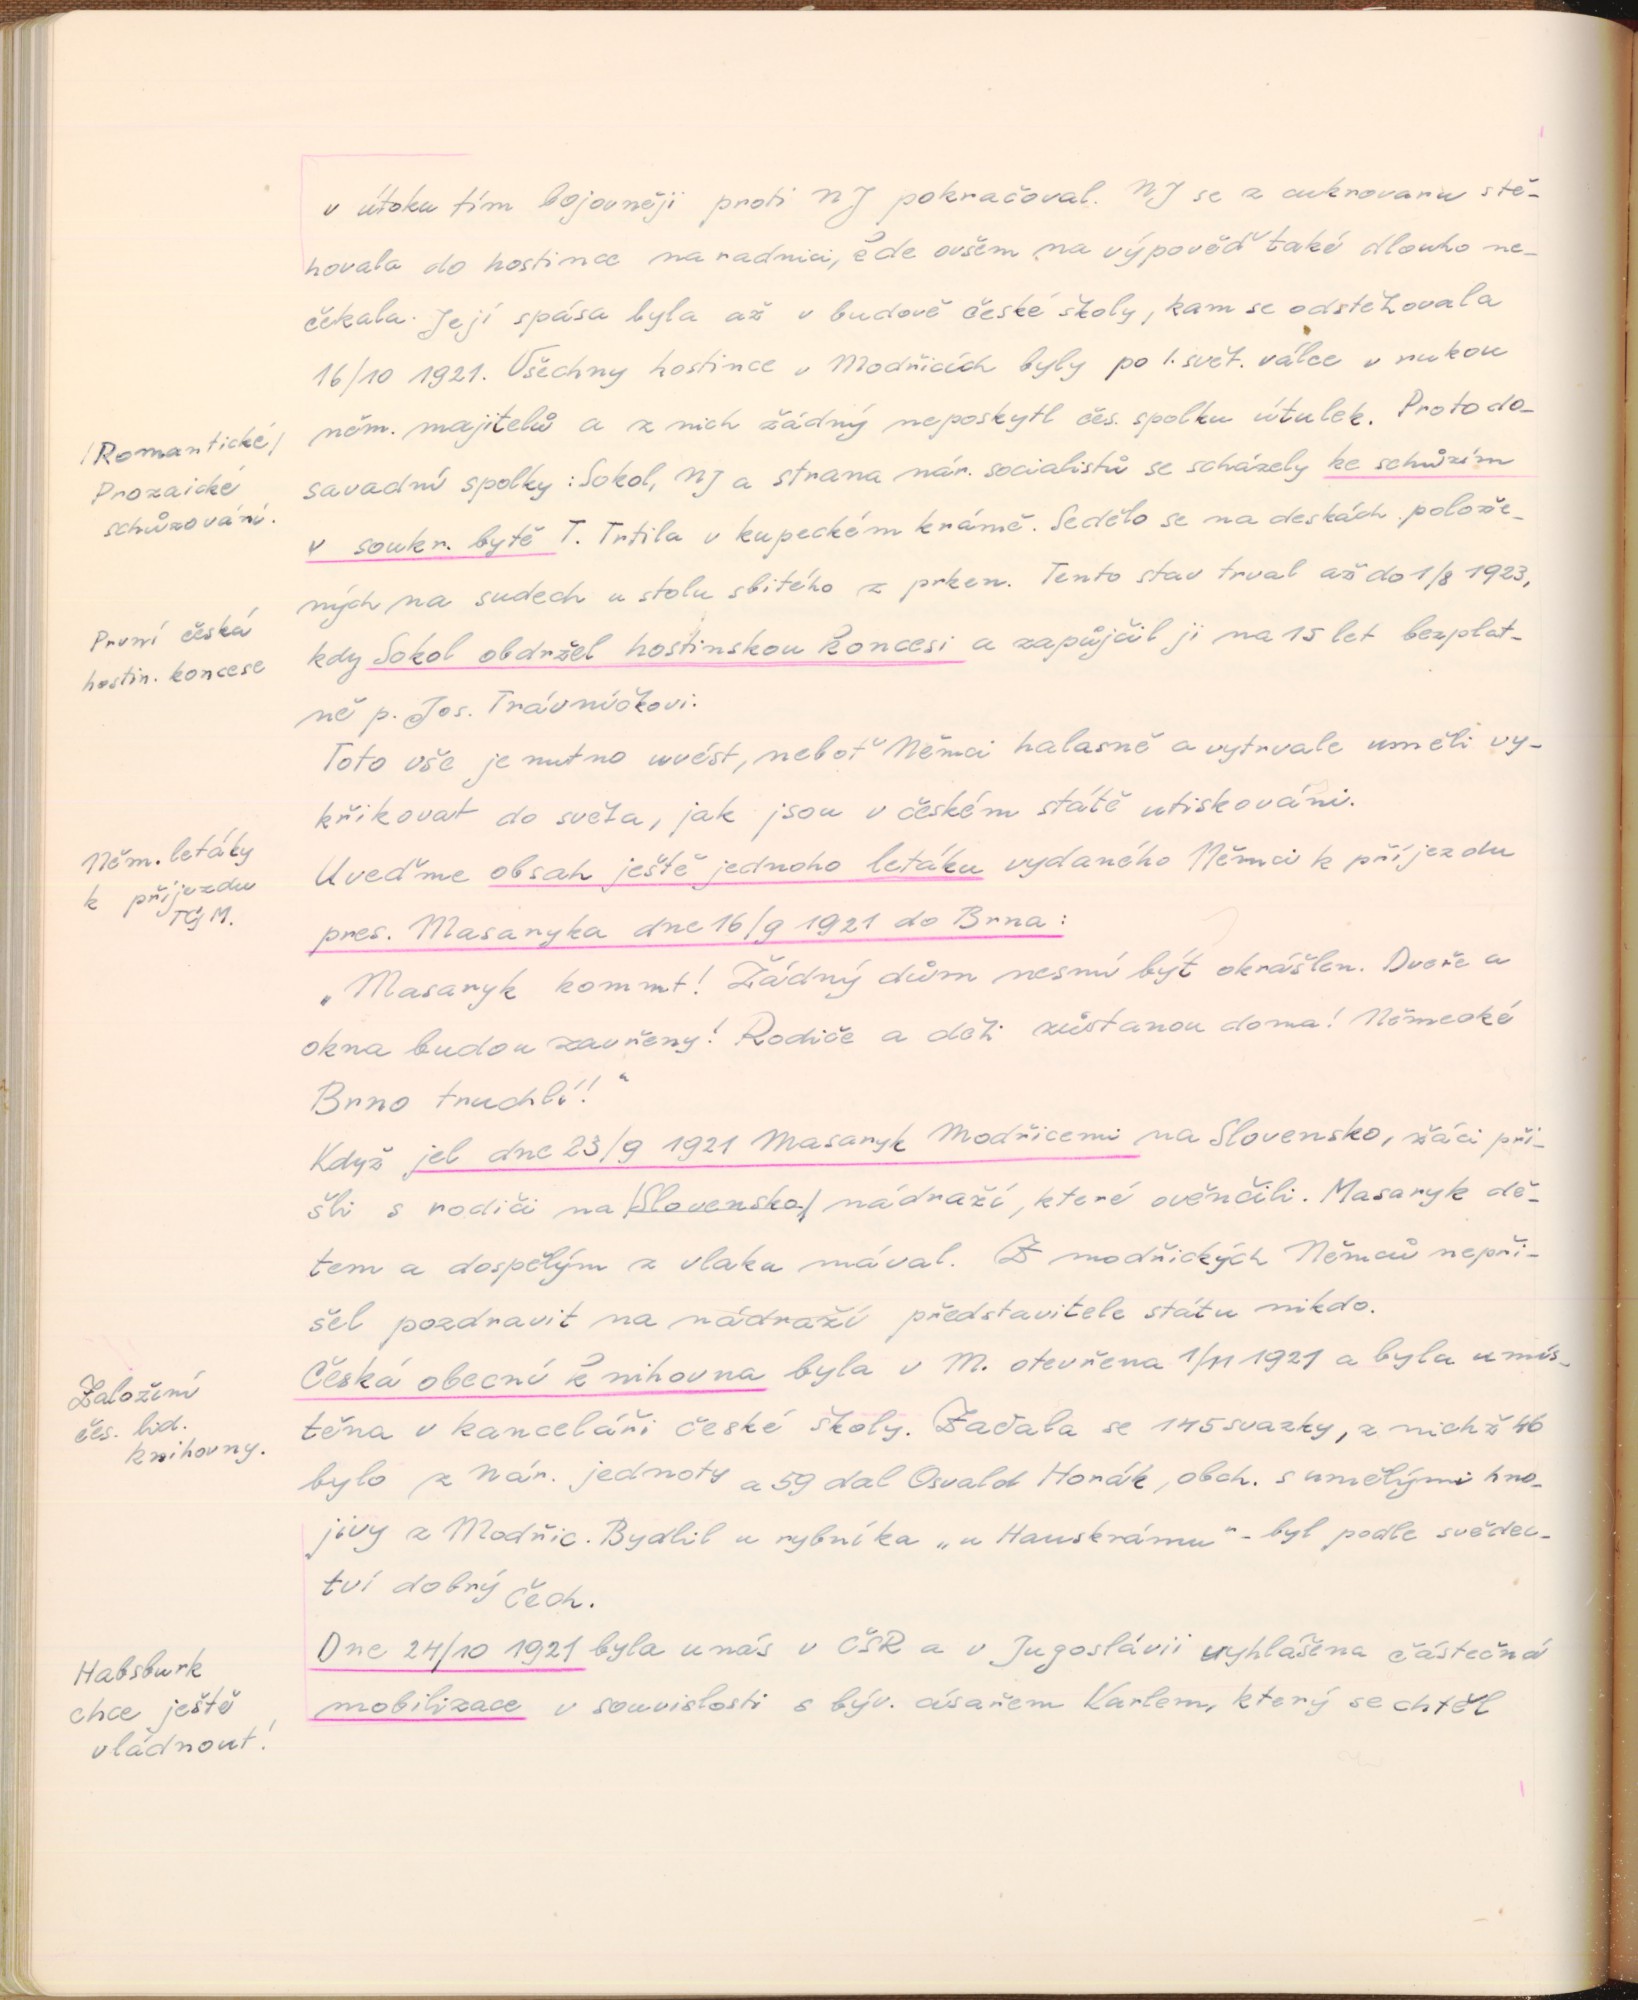 v útoku tím bojovněji proti NJ pokračoval. NJ se z cukrovaru stě-
hovala do hostince na radnici, kde ovšem na výpověď také dlouho ne-
čekala. Její spása byla až v budově české školy, kam se odstěhovala
16/10 1921. Všechny hostince v Modřicích byly po 1. svět. válce v rukou
/Romantické/
Prozaické
schůzování.
něm. majitelů a z nich žádný neposkytl čes. spolku útulek. Proto do-
savadní spolky: Sokol, NJ a strana nár. socialistů se scházely ke schůzím
v soukr. bytě T. Trtila v kupeckém krámě. Sedělo se na deskách polože-
ných na sudech u stolu sbitého z prken. Tento stav trval až do 1/8 1923,
První česká
hostin. koncese
kdy Sokol obdržel hostinskou koncesi a zapůjčil ji na 15 let bezplat-
ně p. Jos. Trávníčkovi.
Toto vše je nutno uvést, neboť Němci halasně a vytrvale uměli vy-
křikovat do světa, jak jsou v českém státě utiskováni.
Něm. letáky
k příjezdu
TGM.
Uveďme obsah ještě jednoho letáku vydaného Němci k příjezdu
pres. Masaryka dne 16/9 1921 do Brna:
„Masaryk kommt! Žádný dům nesmí být okrášlen. Dveře a
okna budou zavřeny! Rodiče a děti zůstanou doma! Německé
Brno truchlí!"
Když jel dne 23/9 1921 Masaryk Modřicemi na Slovensko, žáci při-
šli s rodiči na /Slovensko/ nádraží, které ověnčili. Masaryk dě-
tem a dospělým z vlaku mával. Z modřických Němců nepři-
šel pozdravit na nádraží představitele státu nikdo.
Založení
čes. lid.
knihovny.
Česká obecní knihovna byla v M. otevřena 1/11 1921 a byla umís-
těna v kanceláři české školy. Začala se 145 svazky, z nichž 46
bylo z Nár. jednoty a 59 dal Osvald Horák, obch. s umělými hno-
jivy z Modřic. Bydlil u rybníka „u Hauskrámu" - byl podle svědec-
tví dobrý Čech.
Habsburk
chce ještě
vládnout!
Dne 24/10 1921 byla u nás v ČSR a v Jugoslávii vyhlášena částečná
mobilizace v souvislosti s býv. císařem Karlem, který se chtěl